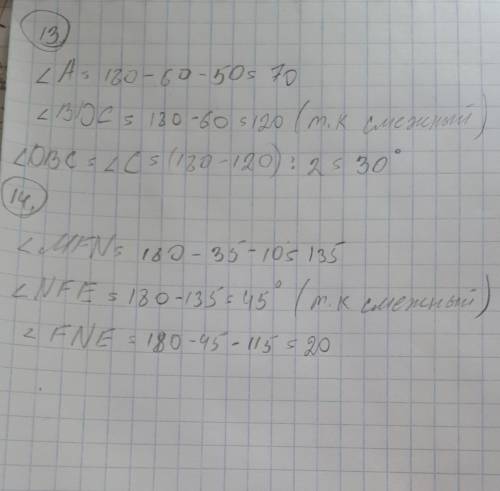 13
∠A = 180 - 60 - 50 = 70
∠BDC = 180 - 60 = 120 (т.к смежный)
∠DBC = ∠C = (180 - 120) : 2 = 30°
14.
∠MFN = 180 - 35 - 10 = 135
∠NFE = 180 - 135 = 45° (т.к смежный)
∠FNE = 180 - 45 - 115 = 20